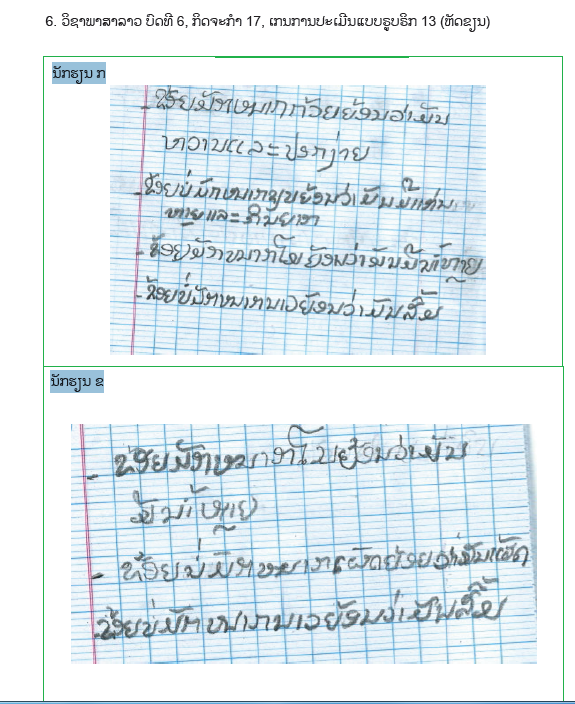 6. ວິຊາພາສາລາວ ບົດທີ 6, ກິດຈະກຳ 17, ເກນການປະເມີນແບບຣູບຣິກ 13 (ຫັດຂຽນ)
ນັກຮຽນ ກ
ຂ້ອຍມັກໝາກກ້ວຍຍ້ອນວ່າມັນ
ຫວານແລະປອກງ່າຍ
- ຂ້ອຍບໍ່ມັກໝາກ ຍ້ອນວ່າມັນມີ
ຫຼາຍແລະກິນຍາກ
- ຂ້ອຍມັກໝາກໂມຍ້ອນວ່າມັນມີນ້ຳຫຼາຍ
- ຂ້ອຍບໍ່ມັກໝາກນາວຍ້ອນວ່າມັນສົ້ມ
ນັກຮຽນ ຂ
- ຂ້ອຍມັກໝາກໂມຍ້ອນວ່າມັນ
ມີນ້ຳຫຼາຍ
- ຂ້ອຍບໍ່ມັກໝາກເຜັດ ວ່າມັນເຜັດ
ຂ້ອຍບໍ່ມັກໝາກນາວຍ້ອນວ່າມັນສົ້ມ